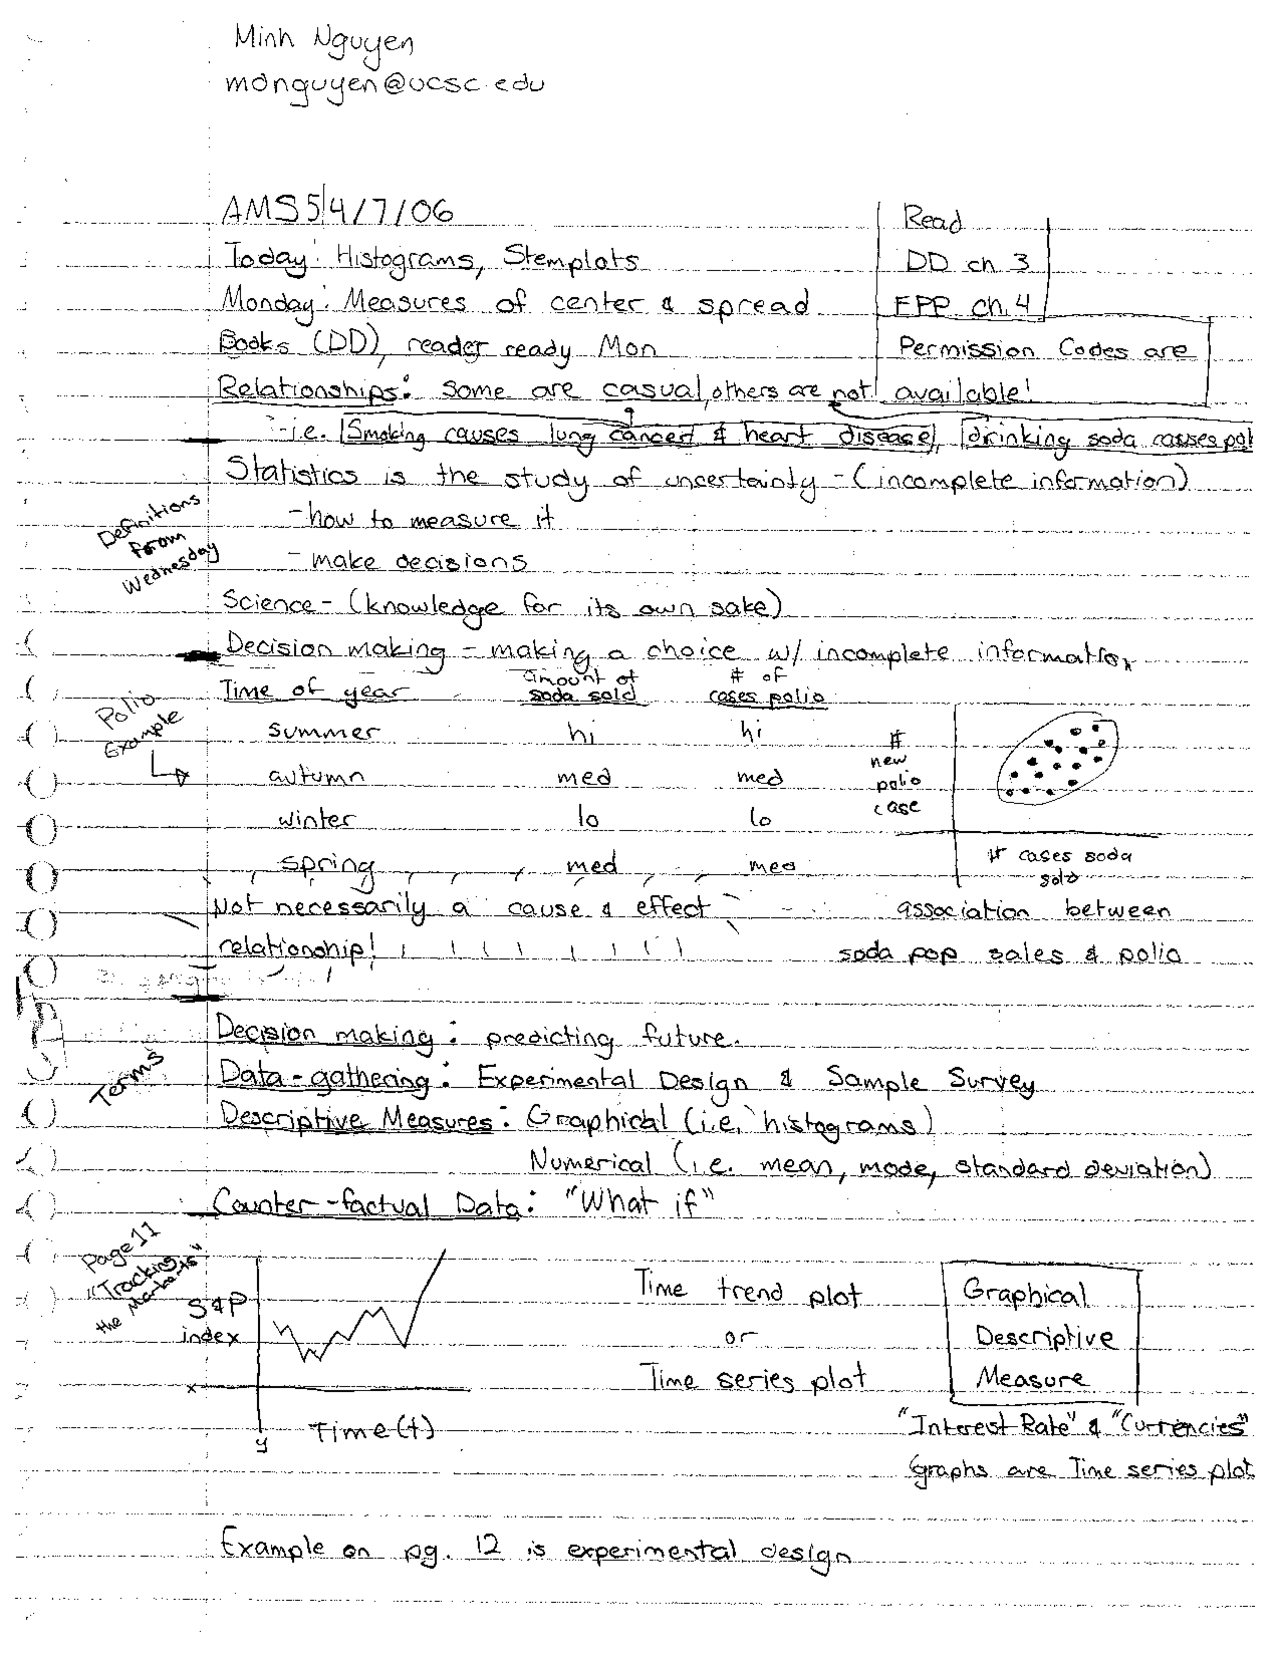 Minh Nguyen
mdnguyen@ucsc.edu
AMS5 4/7/06
Read
Today: Histograms, Stemplots
DD ch 3
Monday: Measures of center & spread
FPP ch. 4
Books (DD), reader ready Mon
Permission Codes are
available!
Relationships: some are casual, others are not!
-i.e. Smoking causes lung cancer & heart disease, drinking soda causes pol
Statistics is the study of uncertainty - (incomplete information)
Definitions
from
Wednesday
-how to measure it
- make decisions
Science - (knowledge for its own sake)
Decision making - making a choice w/ incomplete information
Polio
Example
Time of year amount of soda sold # of cases polio
summer hi hi
autumn med med
winter lo lo
spring med med
#
new
polio
case
# cases soda
sold
Not necessarily a cause & effect
relationship!
association between
soda pop sales & polio
Terms
Decision making: predicting future.
Data-gathering: Experimental Design & Sample Survey
Descriptive Measures: Graphical (i.e. histograms)
Numerical (i.e. mean, mode, standard deviation)
Counter-factual Data: "What if"
Page 11
"Tracking
the Markets"
S&P
index
x
y
Time (t)
Time trend plot
or
Time series plot
Graphical
Descriptive
Measure
"Interest Rate" & "Currencies"
Graphs are Time series plot
Example on pg. 12 is experimental design